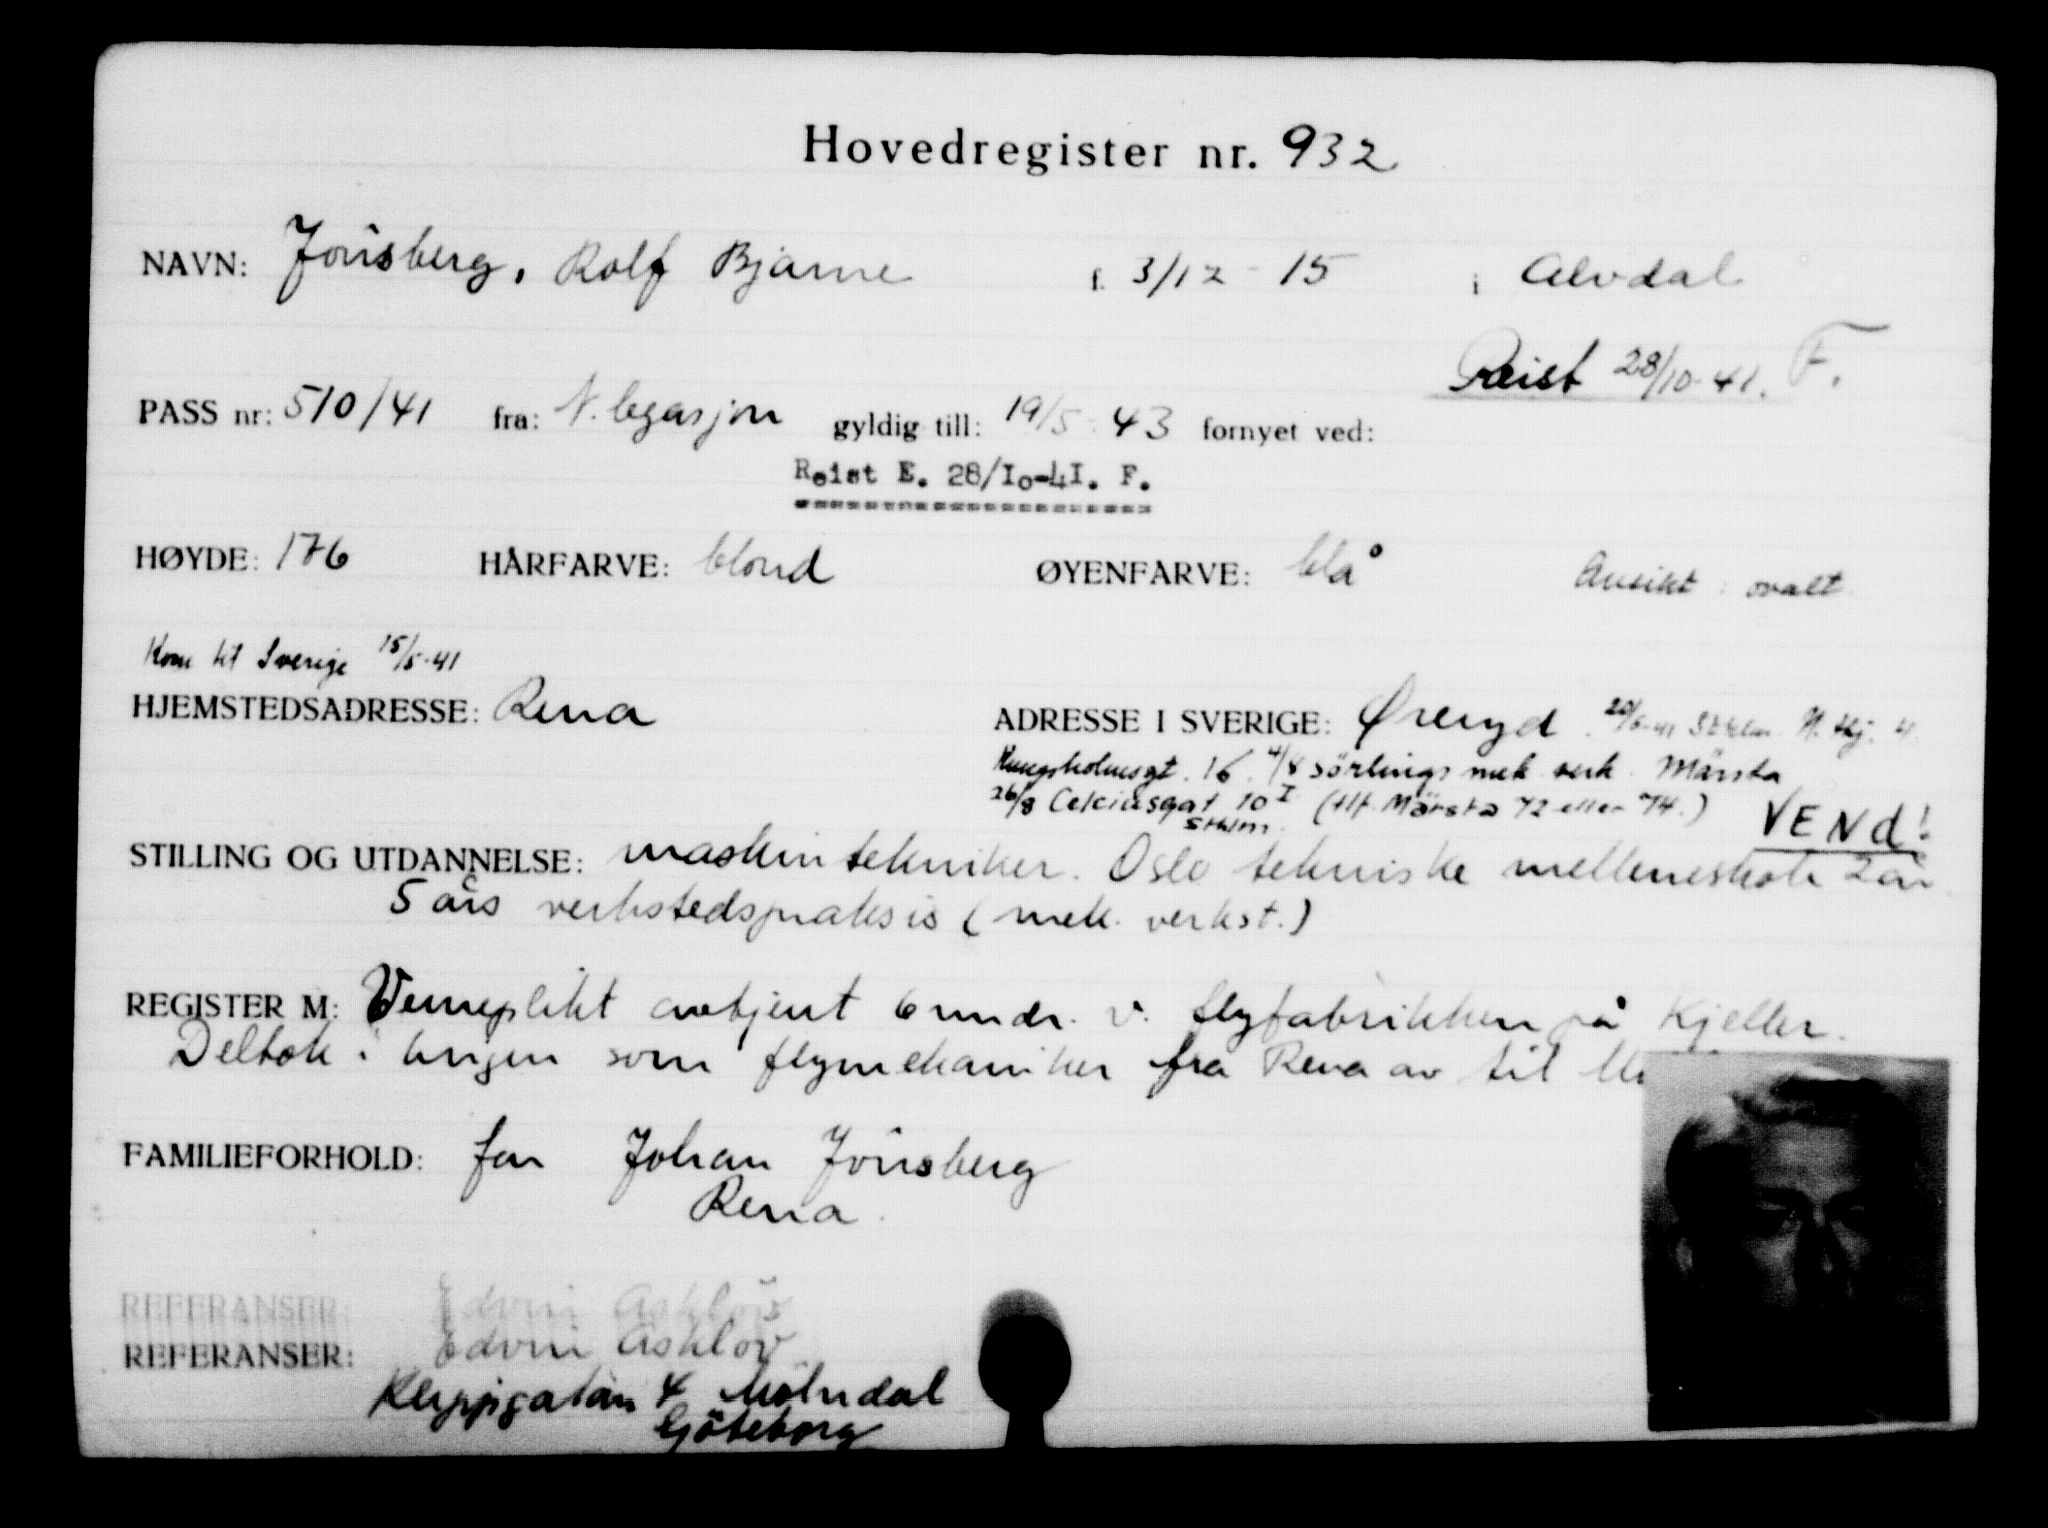 Hovedregister nr. 932
NAVN: Jönsberg, Rolf Bjarne f. 3/12 - 15 i Alvdal
Reist 28/10-41. F.
PASS nr: 510/41 fra: N. legasjon gyldig till: 19/5-43 fornyet ved:
Reist E. 28/Io-4I. F.
HØYDE: 176 HÅRFARVE: blond ØYENFARVE: blå Ansikt: ovalt
Kom til Sverige 15/5-41
HJEMSTEDSADRESSE: Rena ADRESSE I SVERIGE: Øreryd. 20/6-41 Sthlm. N. Hj. 4
Kungsholmsgt. 16. 4/8 Sörlings mek verk. Märsta
26/8 Celciusgat 10 I (tlf. Märsta 72 eller 74.)
Sthlm. VENd!
STILLING OG UTDANNELSE: maskintekniker. Oslo tekniske mellemskole 2 år
5 års verkstedspraksis (mek. verkst.)
REGISTER M: Verneplikt avtjent 6 mndr. v. flyfabrikken på Kjeller.
Deltok i krigen som flymekaniker fra Rena av til
FAMILIEFORHOLD: far Johan Jönsberg
Rena.
REFERANSER: Edvin Asklöv
REFERANSER: Edvin Asklöv
Kleppgatan 4 Mölndal
Göteborg